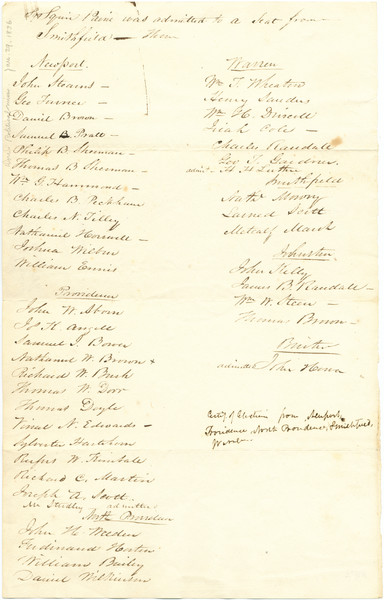 Squir was admitted to a Seat from
Smithfield —
Newport.
John Stearns —
Geo Turner —
Daniel Brown —
Samuel B Pratt —
Philip B Sherman —
Thomas B Sherman —
Wm G Hammond —
Charles B. Peckham
Charles N. Tilley
Nathaniel —
Joshua
William Ennis
Providence
John W. Aborn
Jos H. Angell
Samuel J. Bower
Nathaniel W. Brown
Richard W.
Thomas W. Dorr
Thomas Doyle
N. Edwards —
Sylvester Hartshorn
Rufus W. Kimball
Richard C. Martin
Joseph A. Scott.
Mr admitted
North Providence
John H. Weeden
Ferdinand
William Bailey
Daniel Wilkinson
Warren
Wm T. Wheaton
Henry Sanders
Wm H. Driscoll
Cole —
Charles Randall
Geo T. Gardner
H H Luther
Smithfield
Nathl Mowry
Larned Scott
Metcalf Marsh
Johnston
John Kelly
James B. Randall —
Wm W.
Thomas Brown —
Bristol
admitted John
of Elections from Newport,
Providence, North Providence, Smithfield,